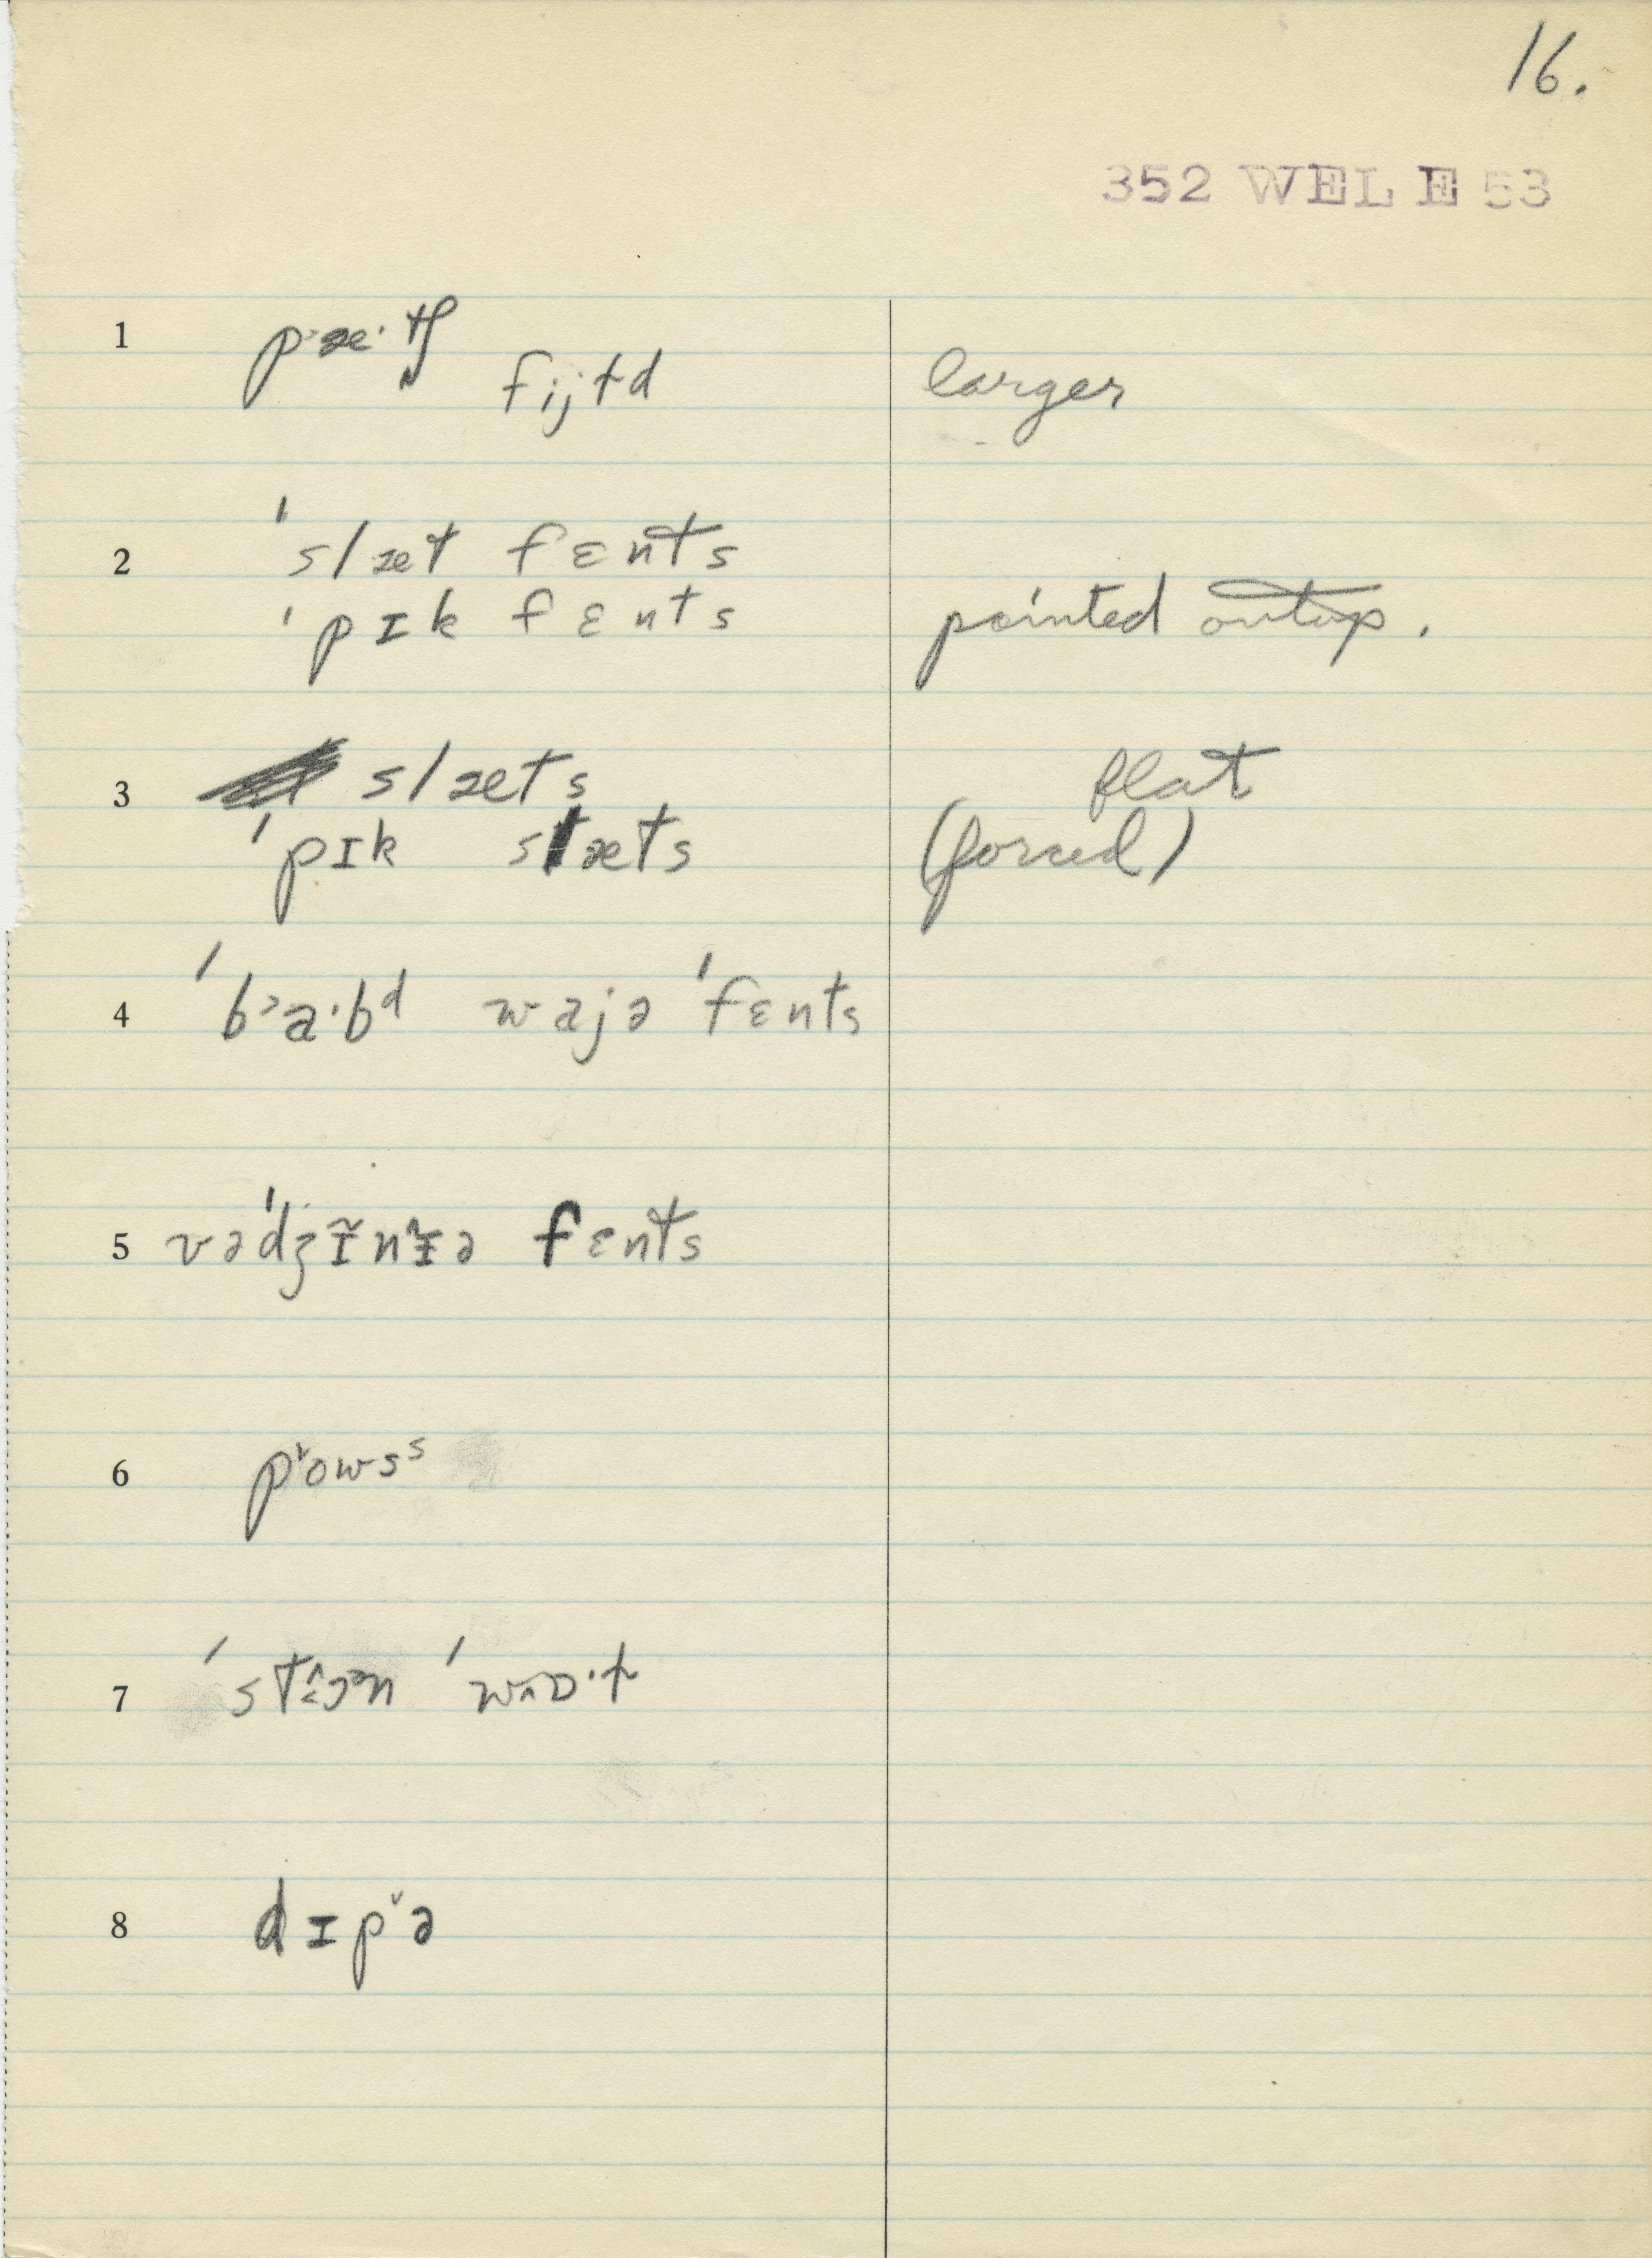 16.
352 WEL E 53
1 pæ·tʃ
fijɫd larger
2 ˈslæt fɛnts
ˈpɪk fɛnts pointed on top.
3 slæts flat
ˈpɪk slæts (forced)
4 ˈbᵊa·bᵈ wajə ˈfɛnts
5 vəˈdʒɪ̃nɪ̂ə fɛnts
6 pˇowsˢ
7
8 dɪpˇə